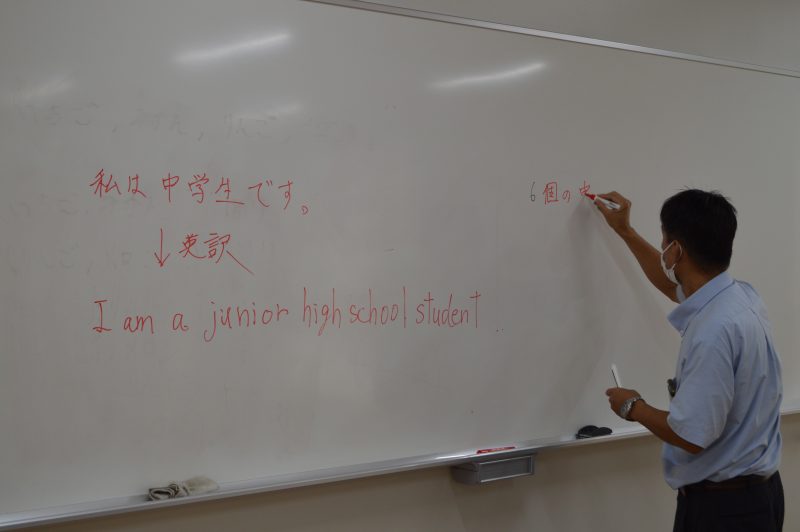 私は中学生です。
↓英訳
I am a junior high school student..
6個の中